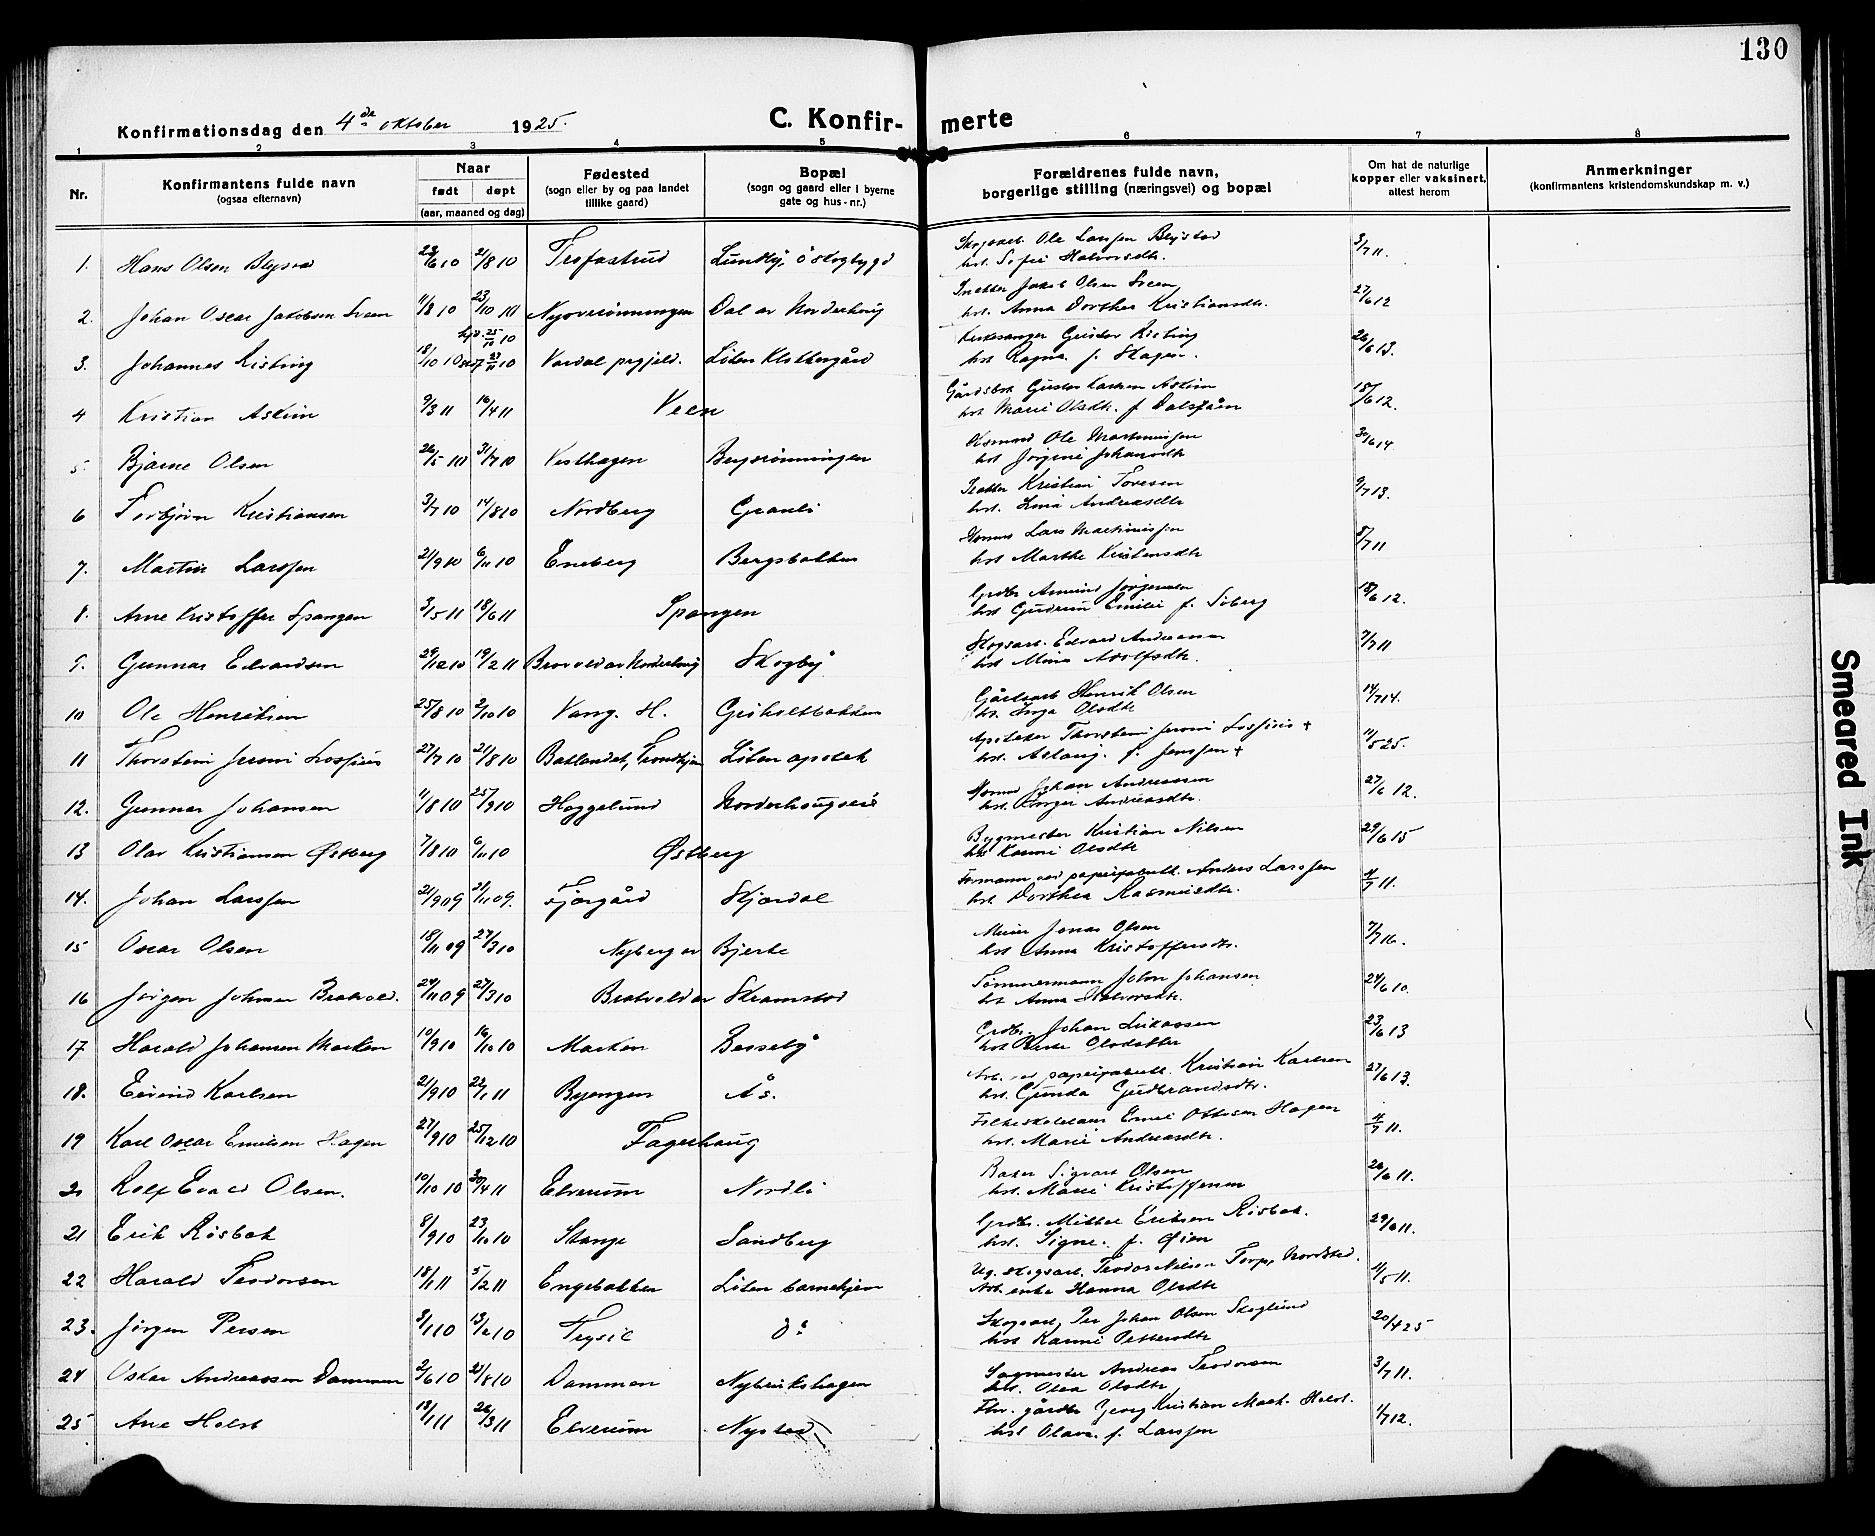 130
Konfirmationsdag den 4de oktober 1925.
C. Konfir- merte
1 2 3 4 5 6 7 8
Nr. Konfirmantens fulde navn (ogsaa efternavn) Naar født døpt (aar, maaned og dag) Fødested (sogn eller by og paa landet tillike gaard) Bopæl (sogn og gaard eller i byerne gate og hus-nr.) Forældrenes fulde navn, borgerlige stilling (næringsvei) og bopæl Om hat de naturlige kopper eller vaksinert, attest herom Anmerkninger (konfirmantens kristendomskundskap m. v.)
1. Hans Olsen 23/6 10 21/8 10 Ole Larssen hst. Sofie Halvorsdtr. 3/7 11.
2. Johan Oscar Jakobsen Sveen 11/8 10 23/10 10 Dal av Norderhoug Jakob Olsen Sveen hst. Anna Dorthea Kristiansdtr. 27/6 12
3. Johannes Risting 18/10 10 Vardal prgjeld. Løten Klokkergård Kirkesanger Gustav Risting hst Ragna f. Skagen. 26/6 13.
4 Kristian Askim 9/3 11 16/4 11 Veen Gårdsbr. Gustav Askim hst Marie Olsdtr. f. 18/6 12.
5. Bjarne Olsen 26/5 10 31/7 10 Vesthagen Bergsrønningen Ole Martinussen hst Jørgine Johansdtr 30/6 14
6 Torbjørn Kristiansen 3/7 10 14/8 10 Nordberg Granli Kristian Toresen hst. Lina Andreasdtr 9/7 13.
7. Martin Larssen 21/9 10 6/11 10 Eneberg Bergsbakken Lars Martinussen hst Marthe Kristensdtr 8/7 11
8. Arne Kristoffer Spangen 3/5 11 18/6 11 Spangen Grdbr Amund Jørgensen hst Gudrun Emilie f. Soberg 18/6 12.
9. Gunnar Edvardsen 29/12 10 19/2 11 Skogby Skogsarb. Edvard Andreassen hst. Mina Adolfsdtr. 7/7 11
10 Ole Henriksen 25/8 10 2/10 10 Vang. H. Grisholtbakken Gårdsarb Henrik Olsen hst. Inga Olsdtr 14/7 14.
11 Thorstein Jeroni Lossius 27/7 10 21/8 10 Baklandet, Trondhjem Løten apotek Apoteker Thorstein Jeroni Lossius + hst. Aslaug. f. Jenssen + 11/5 25.
12. Gunnar Johansen 11/8 10 25/9 10 Heggelund Norderhougseie Johan Andreassen hst. Andreasdtr. 27/6 12.
13 Olav Kristiansen Østberg 7/8 10 6/11 10 Østberg Bygmester Kristian Nilsen hst Karine Olsdtr 29/6 15
14. Johan Larssen 21/9 09 21/11 09. Skjerdal Formann ved papirfabrikk. Anders Larssen hst. Dorthea Rasmusdtr. 4/7 11.
15 Oscar Olsen 18/11 09 27/3 10 Nyberg av Bjerke Jonas Olsen hst Anna Kristoffersdtr. 7/7 16.
16 Jørgen Johnsen Bratvold. 24/11 09 27/3 10 Bratvold av Skramstad Tømmermann John Johansen hst Anna Halvorsdtr. 24/6 10.
17 Harald Johansen Morken 10/9 10 16/10 10 Morken Besseby Grdbr. Johan Lukassen hst Olsdatter 23/6 13
18. Eivind Karlsen 21/9 10 22/1 11 Byengen Ås. Arb. ved papirfabrikk. Kristian Karlsen hst. Gunda Gudbrandsdtr. 27/6 13.
19 Karl Oscar Emilsen Hagen 27/9 10 25/12 10 Fagerhaug Emil Ottesen Hagen hst. Marie Andreasdtr. 4/7 11.
20 Rolf Evald Olsen. 10/10 10 30/4 11 Elverum Nordli Baker Sigvart Olsen hst. Marie Kristoffersen 26/6 11.
21 Erik Risbak 8/9 10 23/10 10 Stange Sandberg Grdbr. Mikkel Eriksen Risbak. hst. Signe. f. Øien 29/6 11.
22 Harald Teodorsen 18/1 11 5/2 11 Engebakken Løten barnehjem Ug. skogsarb. Teodor Nilsen Torp, Nordstad. enke Hanna Olsdtr 11/5 11.
23. Jørgen Persen 3/1 10 13/2 10 Trysil do Skogsarb Per Johan Olsen Skoglund hst Karine Pettersdtr 20/4 25
24 Oskar Andreassen Dammen 2/6 10 21/8 10 Dammen Nybrukshagen Sagmester Andreas Teodorsen hst. Olea Olsdtr 3/7 11.
25 Arne Holst 13/1 11 26/3 11 Elverum Nystad Fhv. gårdbr Georg Kristian Holst. hst Olava. f. Larssen 1/7 12.
Smeared Ink